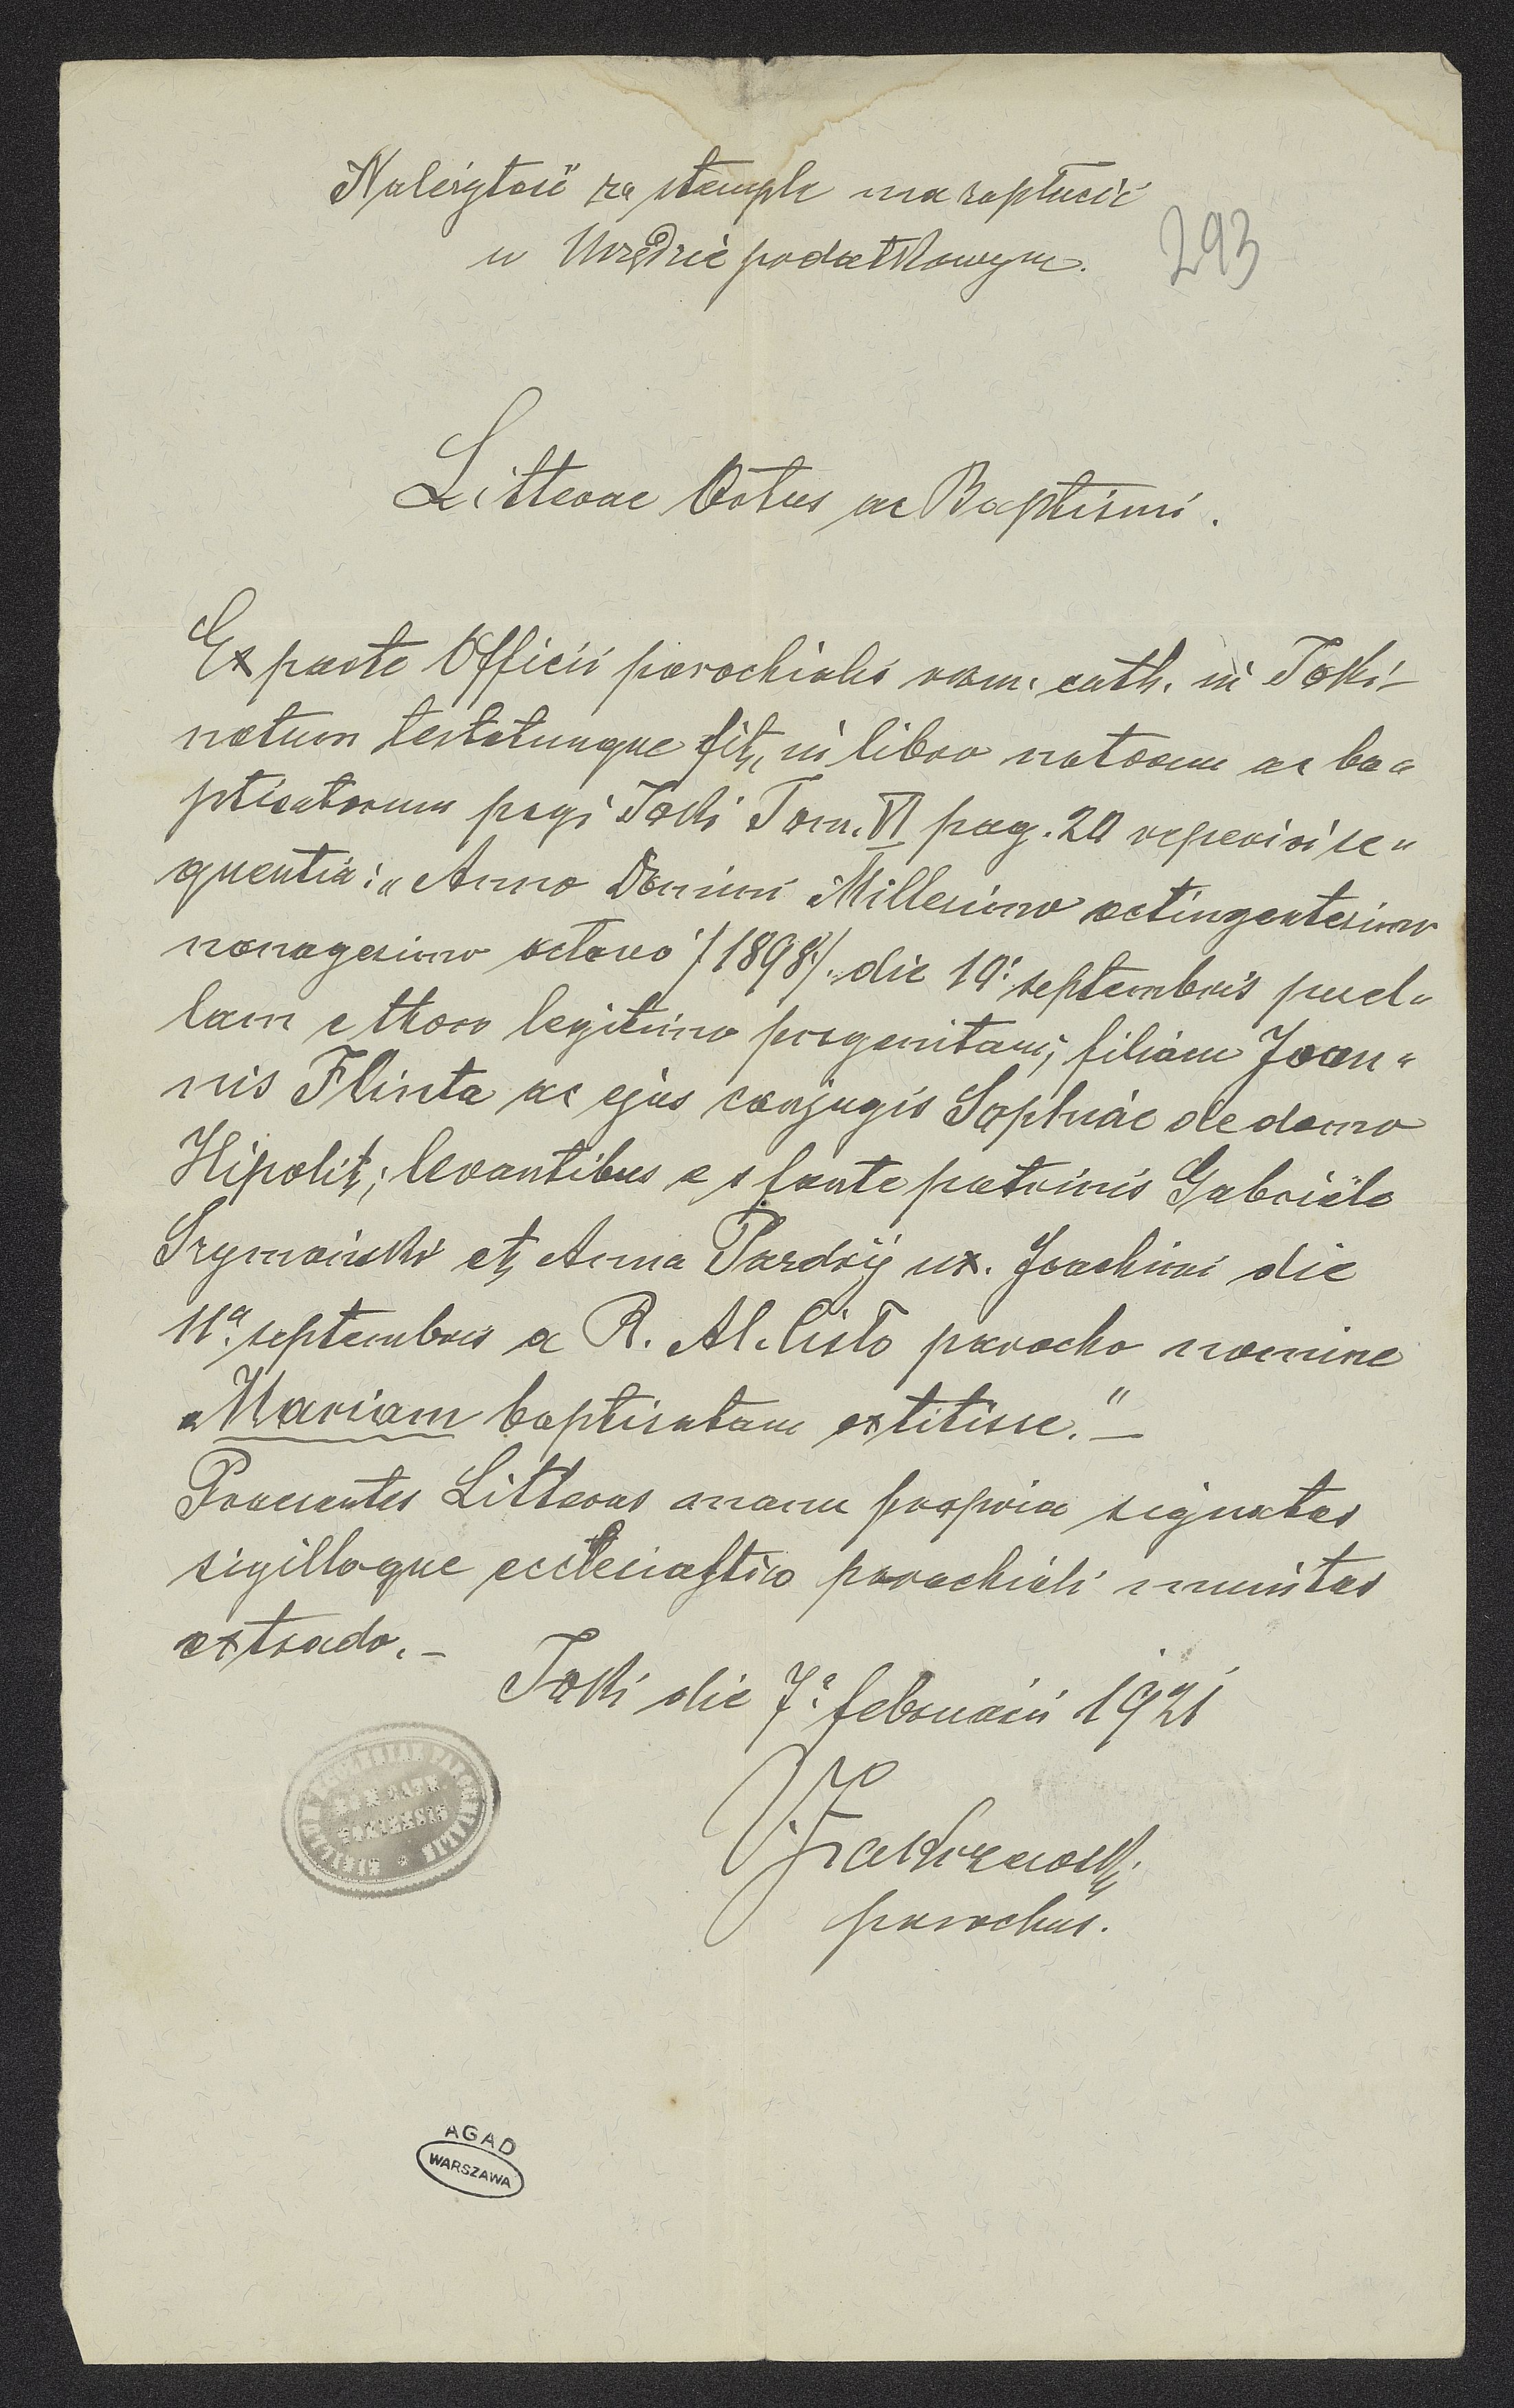 Należytość za stemple ma zapłacić
w Urzędzie podatkowym.
293
Litterae Ortus ac Baptismi.
Ex parte Officii parochialis rom. cath. in Toki
notum testatumque fit, in libro natorum ac ba„
ptisatorum pagi Toki Tom. VI pag. 20 reperiri se„
quentia: „Anno Domini Millesimo octingentesimo
nonagesimo octavo /1898/. die 10. septembris puel„
lam e thoro legitimo progenitam, filiam Joan„
nis Flinta ac ejus conjugis Sophiae de domo
Hipolit; levantibus e s fonte patrinis Gabriele
Szymański et Anna Pazdrij ux. Joachimi die
11ª. septembris a R. Al. Cisło parocho nomine
„Mariam baptisatam extitisse." —
Praesentes Litteras manu propria signatas
sigilloque ecclesiastico parochiali munitas
extrado. —
Toki die 7ª februarii 1921
parochus.
SIGILLUM ECCLESIAE PAROCHIALIS
AGAD
WARSZAWA